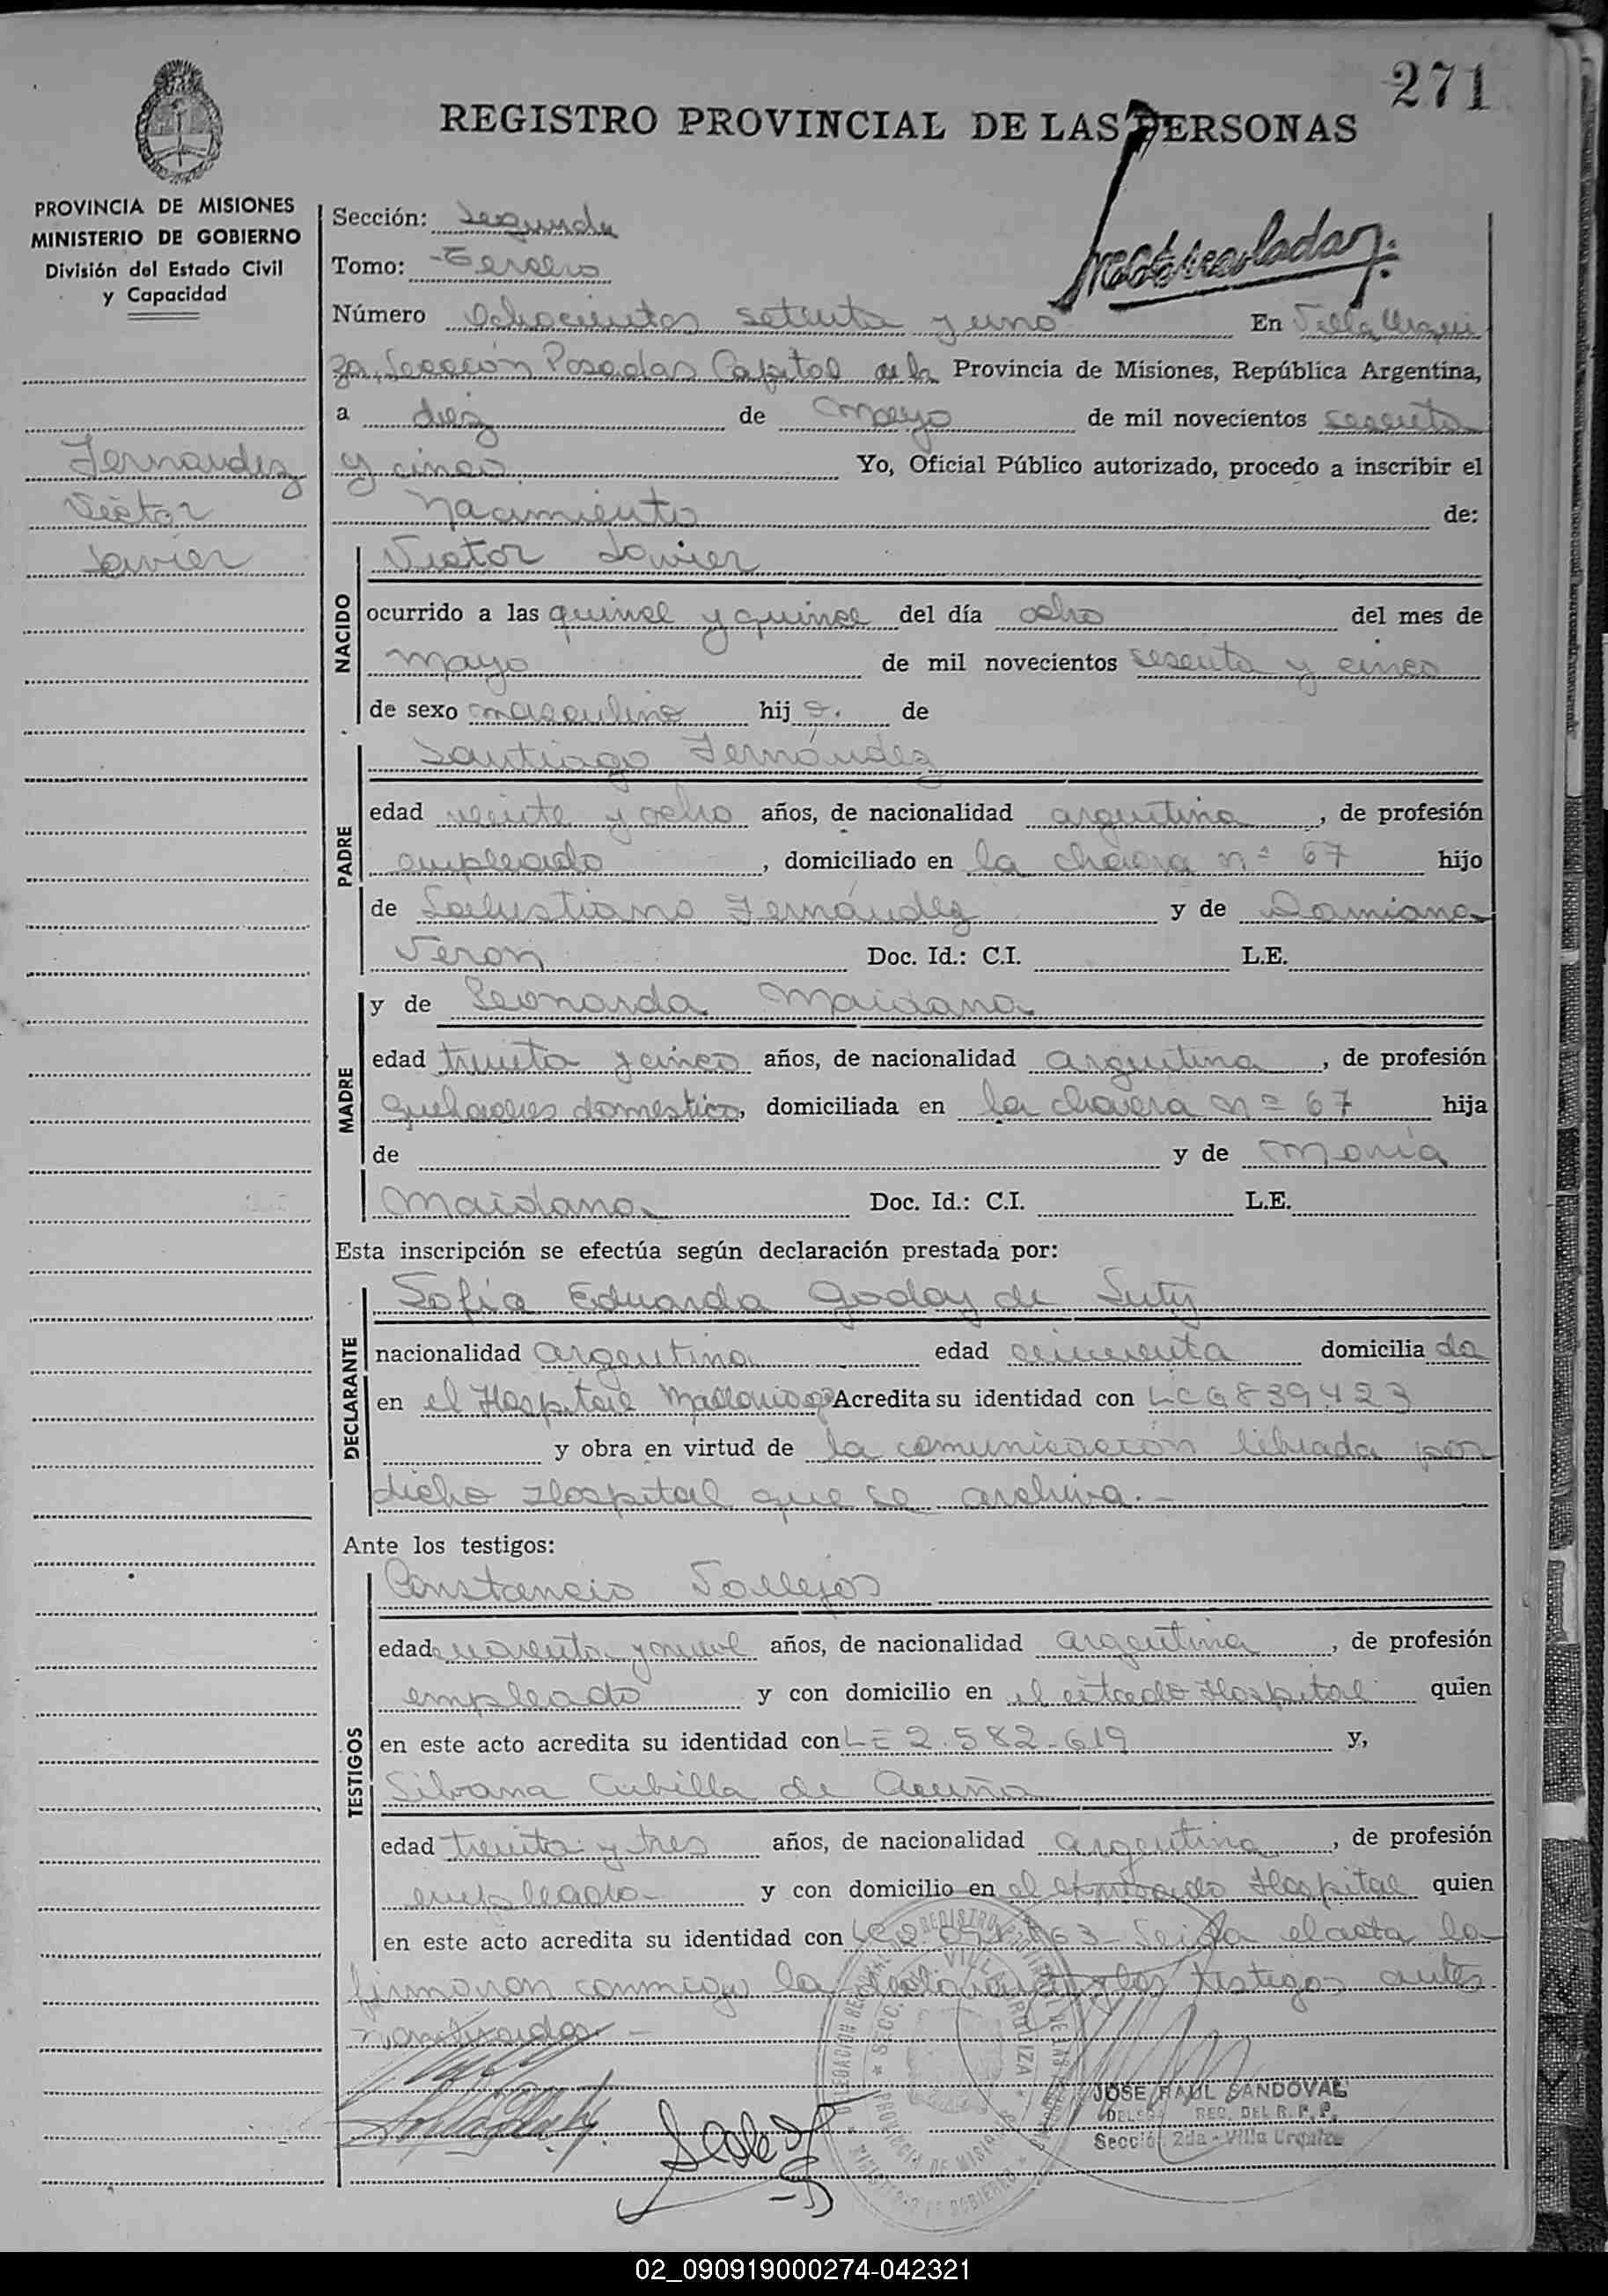 271
REGISTRO PROVINCIAL DE LAS PERSONAS
PROVINCIA DE MISIONES
MINISTERIO DE GOBIERNO
División del Estado Civil
y Capacidad
Fernandez
Victor
Javier
Sección: Segunda
Tomo: Tercero
Número Ochocientos setenta y uno En Villa Urqui
za, Sección Posadas Capital de la Provincia de Misiones, República Argentina,
a diez de mayo de mil novecientos sesenta
y cinco Yo, Oficial Público autorizado, procedo a inscribir el
Nacimiento de:
NACIDO
Victor Javier
ocurrido a las quince y quince del día ocho del mes de
mayo de mil novecientos sesenta y cinco
de sexo masculino hijo. de
PADRE
Santiago Fernández
edad veinte y ocho años, de nacionalidad argentina, de profesión
empleado, domiciliado en la chacra nº 67 hijo
de Salustiano Fernández y de Damiana
Veron Doc. Id.: C.I. L.E.
MADRE
y de Leonarda Maidana
edad treinta y cinco años, de nacionalidad argentina, de profesión
quehaceres domestico, domiciliada en la chacra nº 67 hija
de y de Maria
Maidana Doc. Id.: C.I. L.E.
Esta inscripción se efectúa según declaración prestada por:
DECLARANTE
Sofia Eduarda Godoy de
nacionalidad argentina edad cincuenta domiciliada
en el Hospital Acredita su identidad con LC 6839.423
y obra en virtud de la comunicación librada por
dicho Hospital que se archiva.-
Ante los testigos:
TESTIGOS
Constancio Vallejos
edad y nueve años, de nacionalidad argentina, de profesión
empleado y con domicilio en el citado Hospital quien
en este acto acredita su identidad con LE 2.582-619 y,
Silvana Cubilla de Acuña
edad treinta y tres años, de nacionalidad argentina, de profesión
empleada y con domicilio en el Hospital quien
en este acto acredita su identidad con Leida el acta la
firmaron conmigo la declarante y los testigos antes
JOSE RAUL SANDOVAL
REG. DEL R. P. P.
Sección 2da - Villa Urquiza
02_090919000274-042321